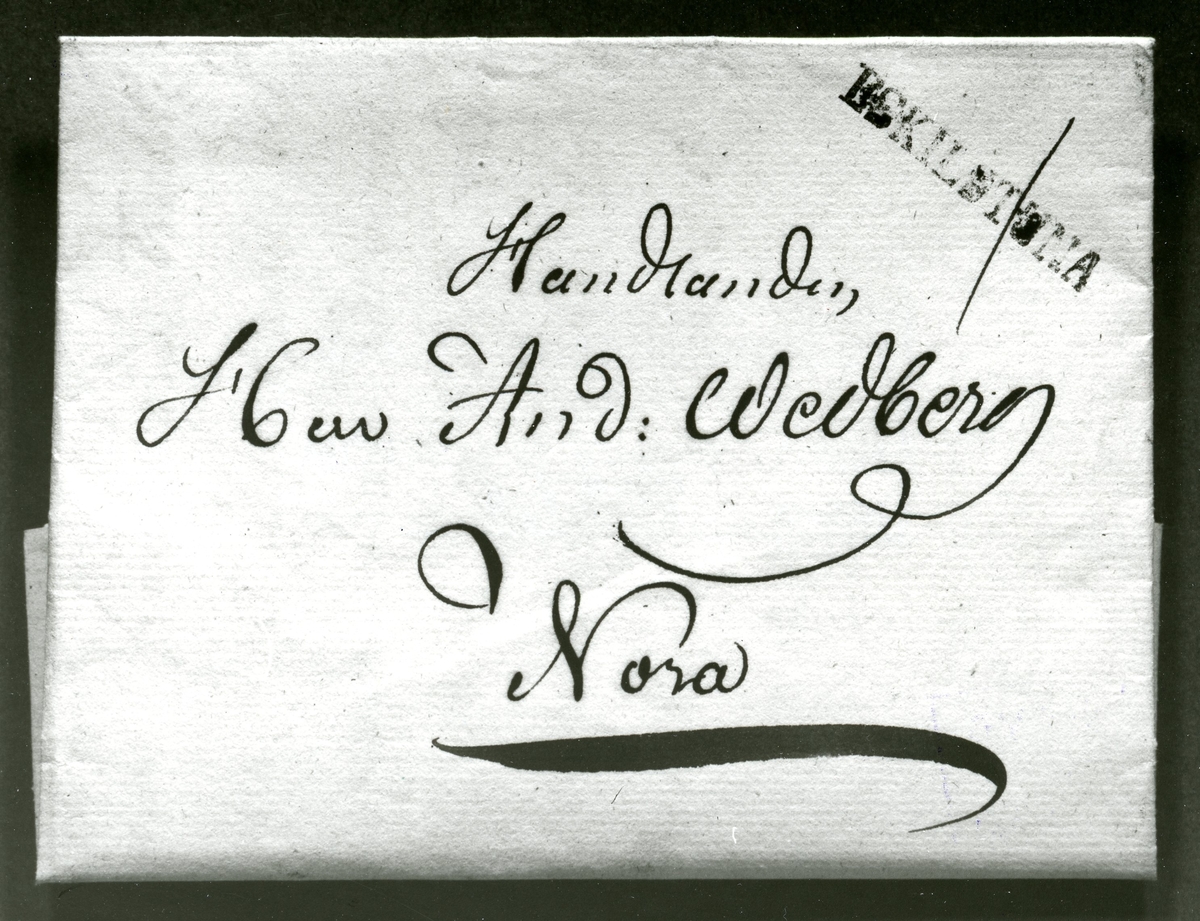 ESKILSTUNA
Handlanden,
Herr And: Wedberg
Nora